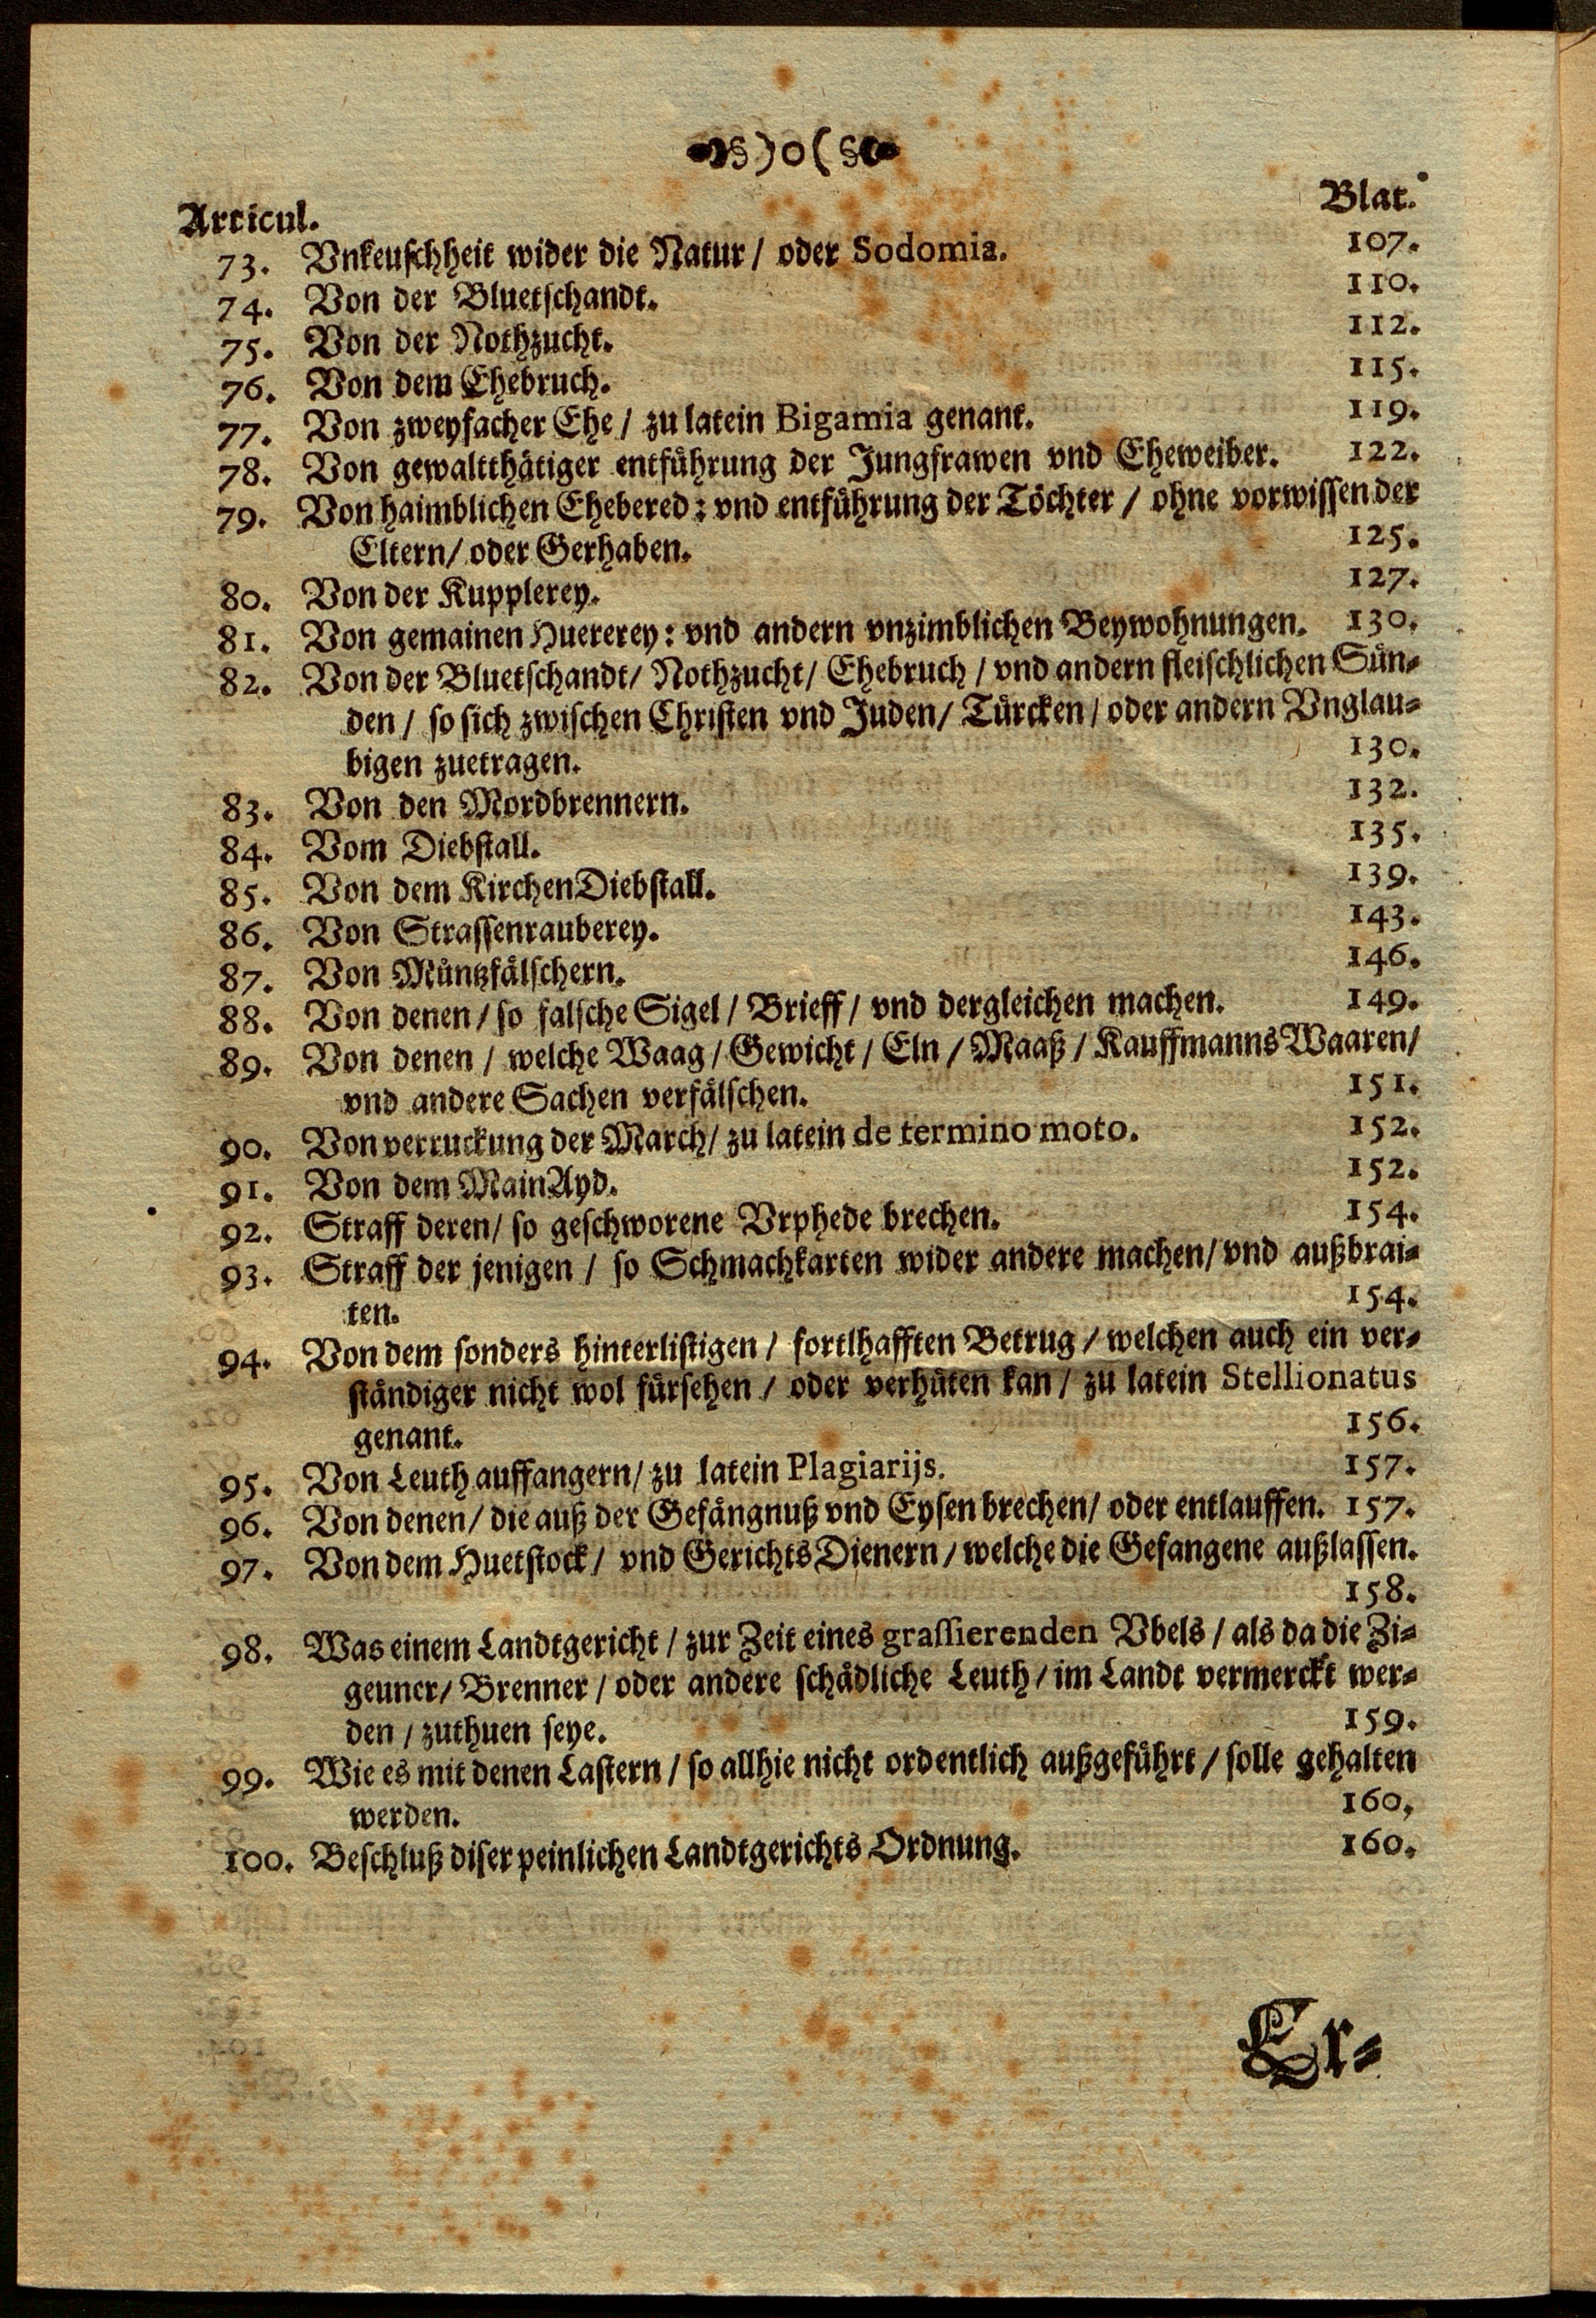 §)o(§
Articul. Blat.
73. Vnkeuschheit wider die Natur / oder Sodomia. 107.
74. Von der Bluetschandt. 110.
75. Von der Nothzucht. 112.
76. Von dem Ehebruch. 115.
77. Von zweyfacher Ehe / zu latein Bigamia genant. 119.
78. Von gewaltthätiger entführung der Jungfrawen vnd Eheweiber. 122.
79. Von haimblichen Ehebered: vnd entführung der Töchter / ohne vorwissen der
Eltern/ oder Gerhaben. 125.
80. Von der Kupplerey. 127.
81. Von gemainen Huererey: vnd andern vnzimblichen Beywohnungen. 130.
82. Von der Bluetschandt/ Nothzucht/ Ehebruch / vnd andern fleischlichen Sün-
den / so sich zwischen Christen vnd Juden/ Türcken / oder andern Vnglau-
bigen zuetragen. 130.
83. Von den Mordbrennern. 132.
84. Vom Diebstall. 135.
85. Von dem KirchenDiebstall. 139.
86. Von Strassenrauberey. 143.
87. Von Müntzfälschern. 146.
88. Von denen / so falsche Sigel / Brieff / vnd dergleichen machen. 149.
89. Von denen / welche Waag / Gewicht / Eln / Maaß / Kauffmanns Waaren/
vnd andere Sachen verfälschen. 151.
90. Von verruckung der March/ zu latein de termino moto. 152.
91. Von dem MainAyd. 152.
92. Straff deren/ so geschworene Vrphede brechen. 154.
93. Straff der jenigen / so Schmachkarten wider andere machen/ vnd außbrai-
ten. 154.
94. Von dem sonders hinterlistigen / fortlhafften Betrug / welchen auch ein ver-
ständiger nicht wol fürsehen / oder verhüten kan / zu latein Stellionatus
genant. 156.
95. Von Leuth auffangern/ zu latein Plagiarijs. 157.
96. Von denen/ die auß der Gefängnuß vnd Eysen brechen/ oder entlauffen. 157.
97. Von dem Huetstock / vnd Gerichts Dienern / welche die Gefangene außlassen.
158.
98. Was einem Landtgericht / zur Zeit eines grassierenden Vbels / als da die Zi-
geuner/ Brenner / oder andere schädliche Leuth / im Landt vermerckt wer-
den / zuthuen seye. 159.
99. Wie es mit denen Lastern / so allhie nicht ordentlich außgeführt / solle gehalten
werden. 160.
100. Beschluß diser peinlichen Landtgerichts Ordnung. 160.
Er-